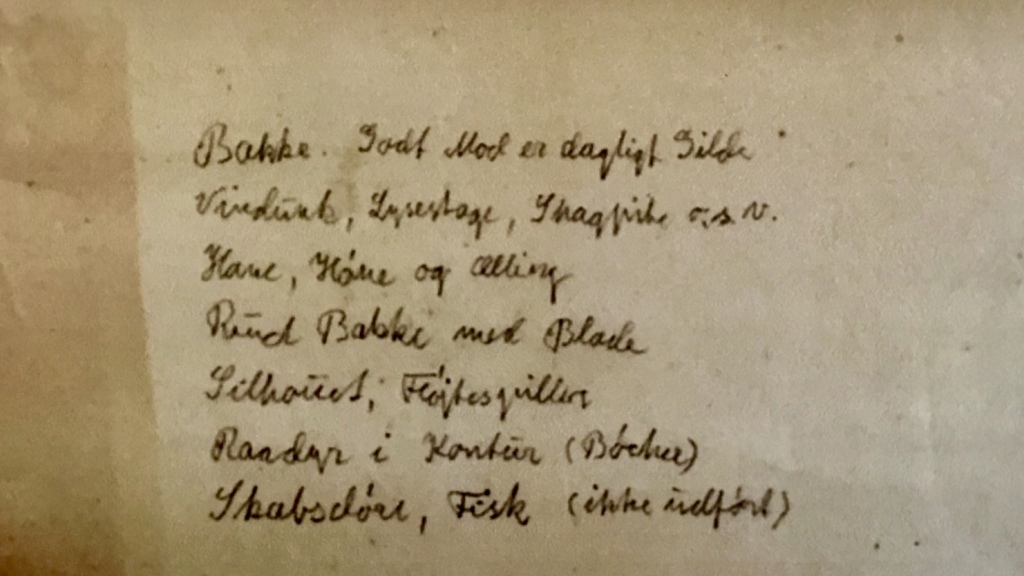 Bakke. Godt Mod er dagligt Gilde
Vindunk, Lysestage, Shagpibe o.s.v.
Hane, Høne og Ælling
Rund Bakke med Blade
Silhouet, Fløjtespiller
Raadyr i Kontur (Bøcher)
Skabsdøre, Fisk (ikke udført)